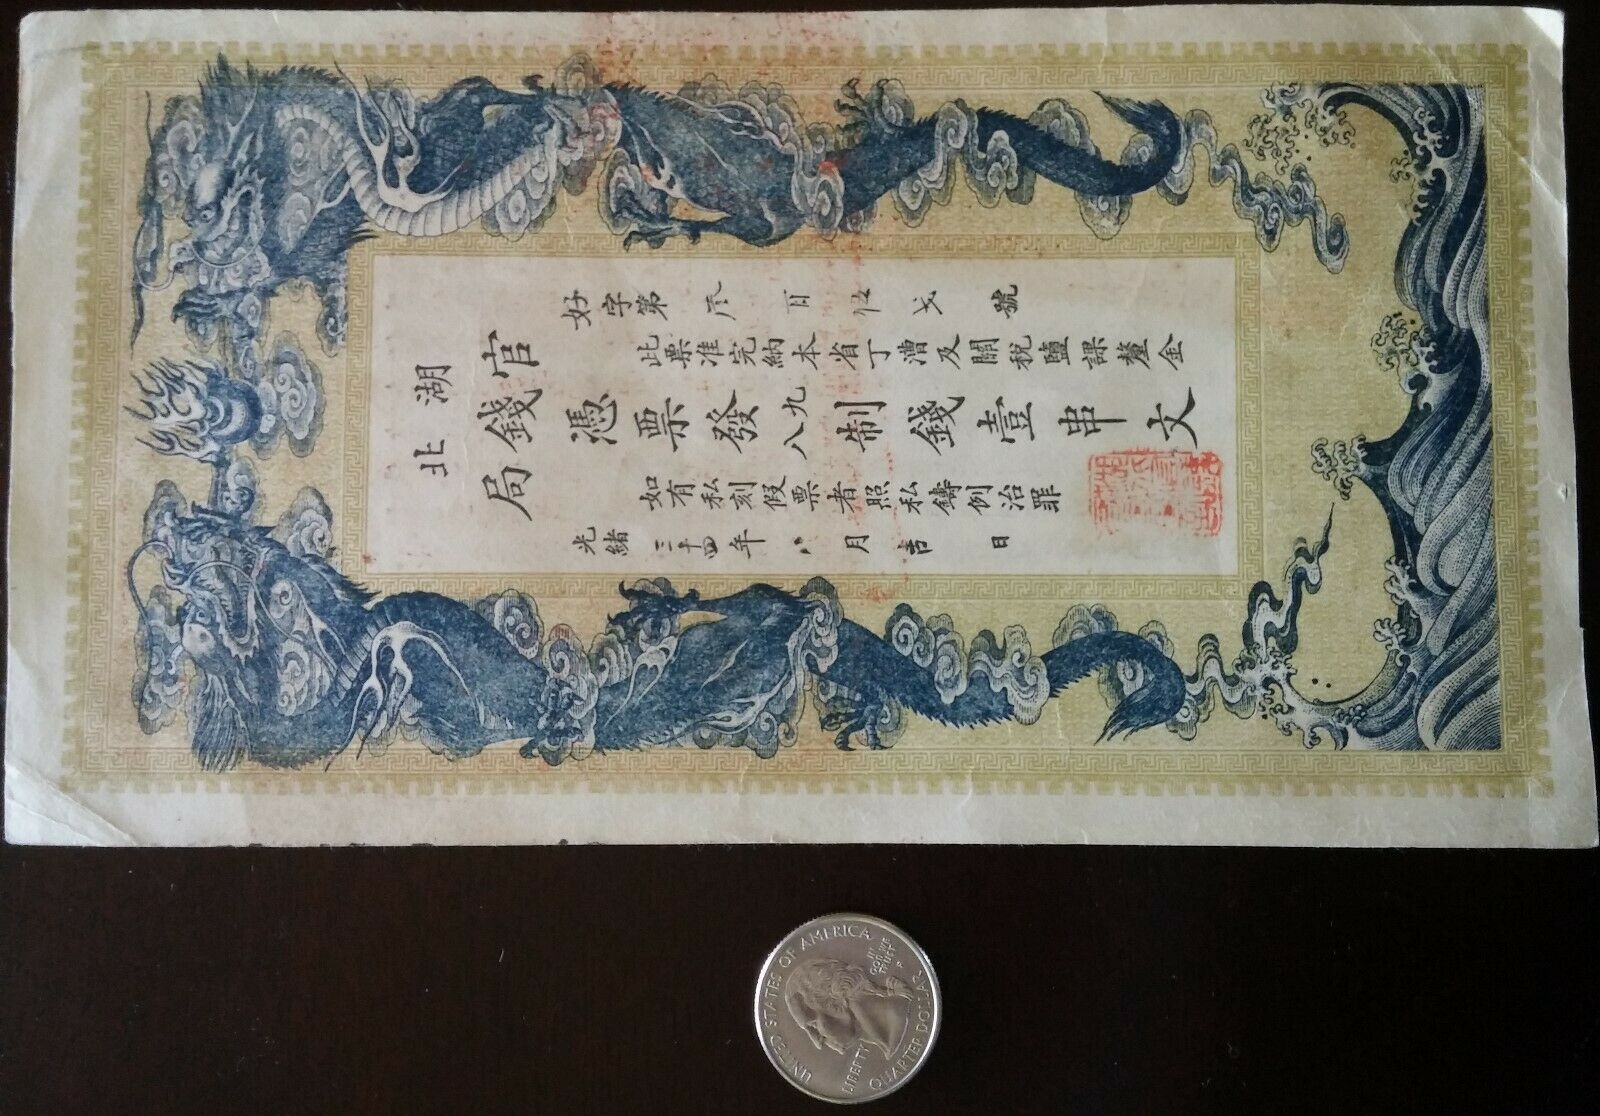 湖北
官錢局
好字第 百 號
此票准完納本省丁漕及關稅鹽課釐金
憑票發九八制錢壹串文
如有私刻假票者照私鑄例治罪
光緒三十四年八月吉日
UNITED STATES OF AMERICA
LIBERTY
IN GOD WE TRUST
P
QUARTER DOLLAR